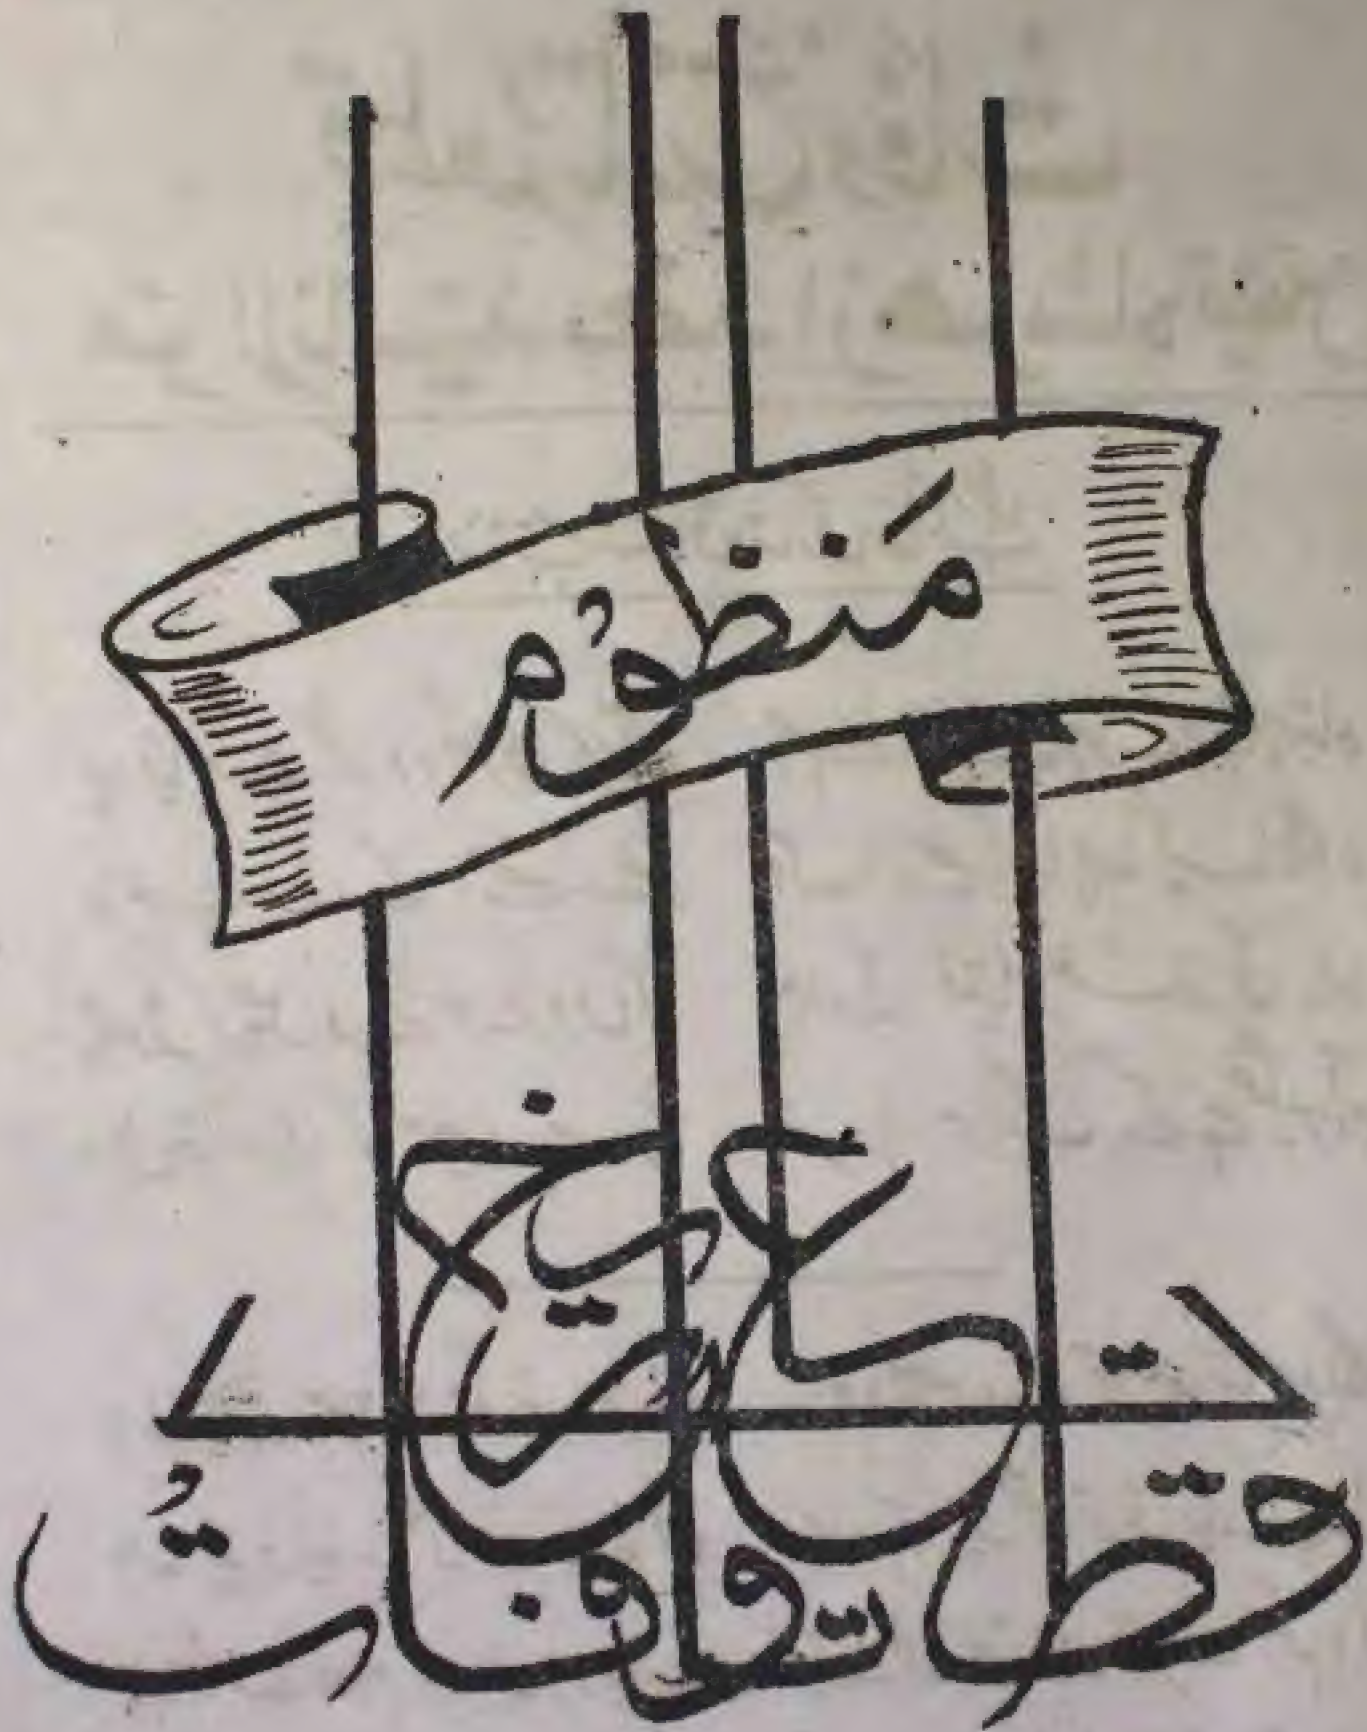 مَنظُوم
قطعاتِ تواریخ وفات